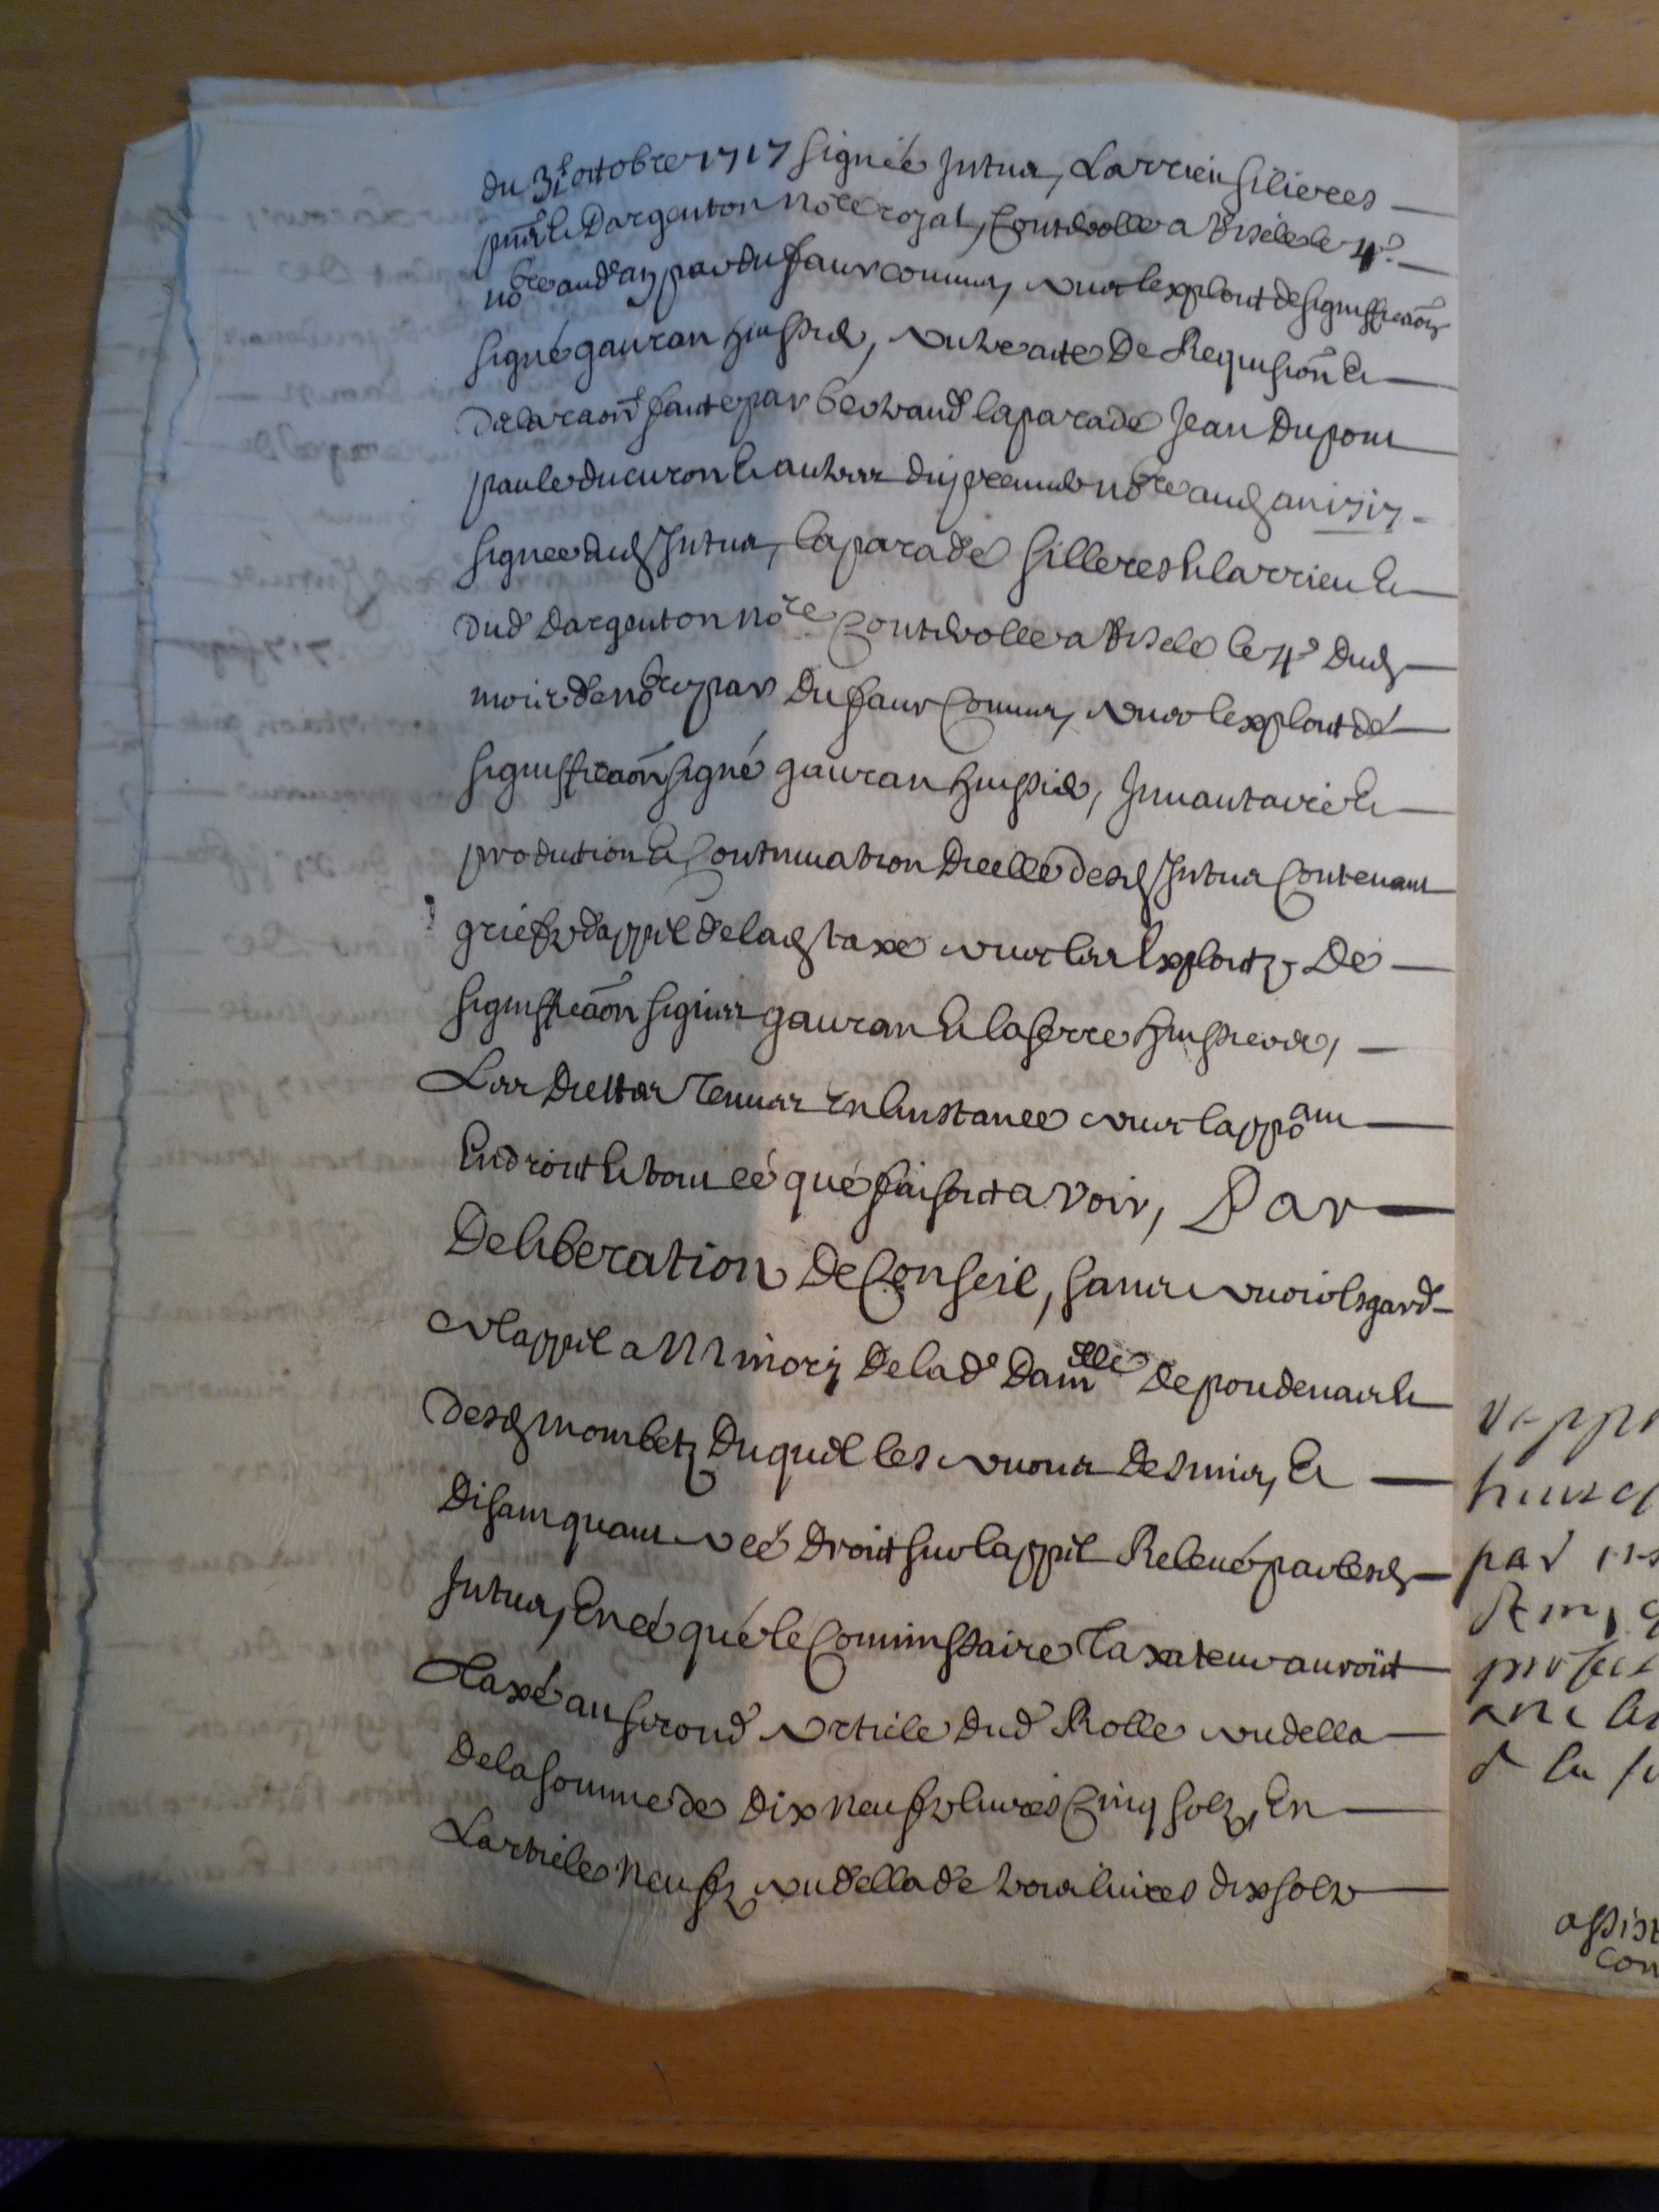 du 31e octobre 1717 signée Intua, Larrieu silieres
pnts et Dargenton nore royal, Controlle a le 4e
nobre aud an par Dufaur commis, avec lexploit de signifficaõn
signé gauran huissier, autre acte De Requisiõn et
declaraõn faite par bertrand laparade Jean Dupont
paule ducuron et autres du premier nobre aud an 1717
signée dud Intua, laparade silleres et larrieu et
dud Dargenton nore Controlle a le 4e Dud
mois de nobre par Dufaur Commis, avec lexploit dé
signifficaõn signé gauran huissier, Inuantaire et
prodution et Continuation Dicelle desd Intua Contenant
griefs dappel de lad taxe avec les Exploitz De
signifficaõn signés gauran et laserre huissiers,
Les Dittes Tenues En linstance avec lappoant
En droit et tout cé qué faisoit a voir, Par
Deliberation De Conseil, sans avoir Esgard
a lappel a Minory De lad Damlle De poudenas et
desd mombetz Duquel les auons Desmis, Et
Disant quant a cé Droit sur lappel Releué par lesd
Intua, En cé qué le Commissaire Taxateur auroit
Taxé au second Article Dud Rolle au della
De la somme de Dix neufs liures Cinq solz, En
Larticle Neufz au della de trois liures dix solz
vappe
par
assist
con